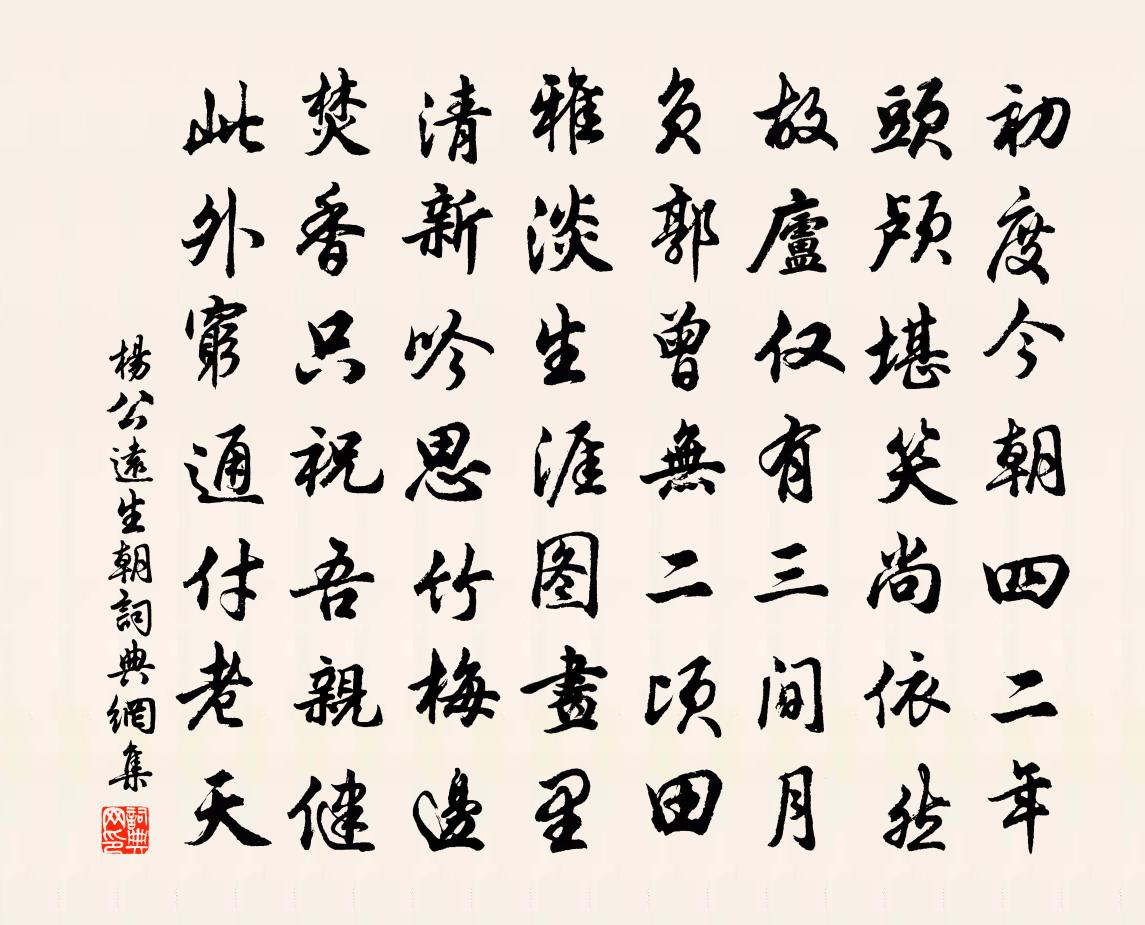 初度今朝四二年
頭顱堪笑尚依然
故廬仅有三間月
負郭曾無二頃田
雅淡生涯图畫里
清新吟思竹梅邊
焚香只祝吾親健
此外窮通付老天
楊公遠生朝詞典網集
詞典网印